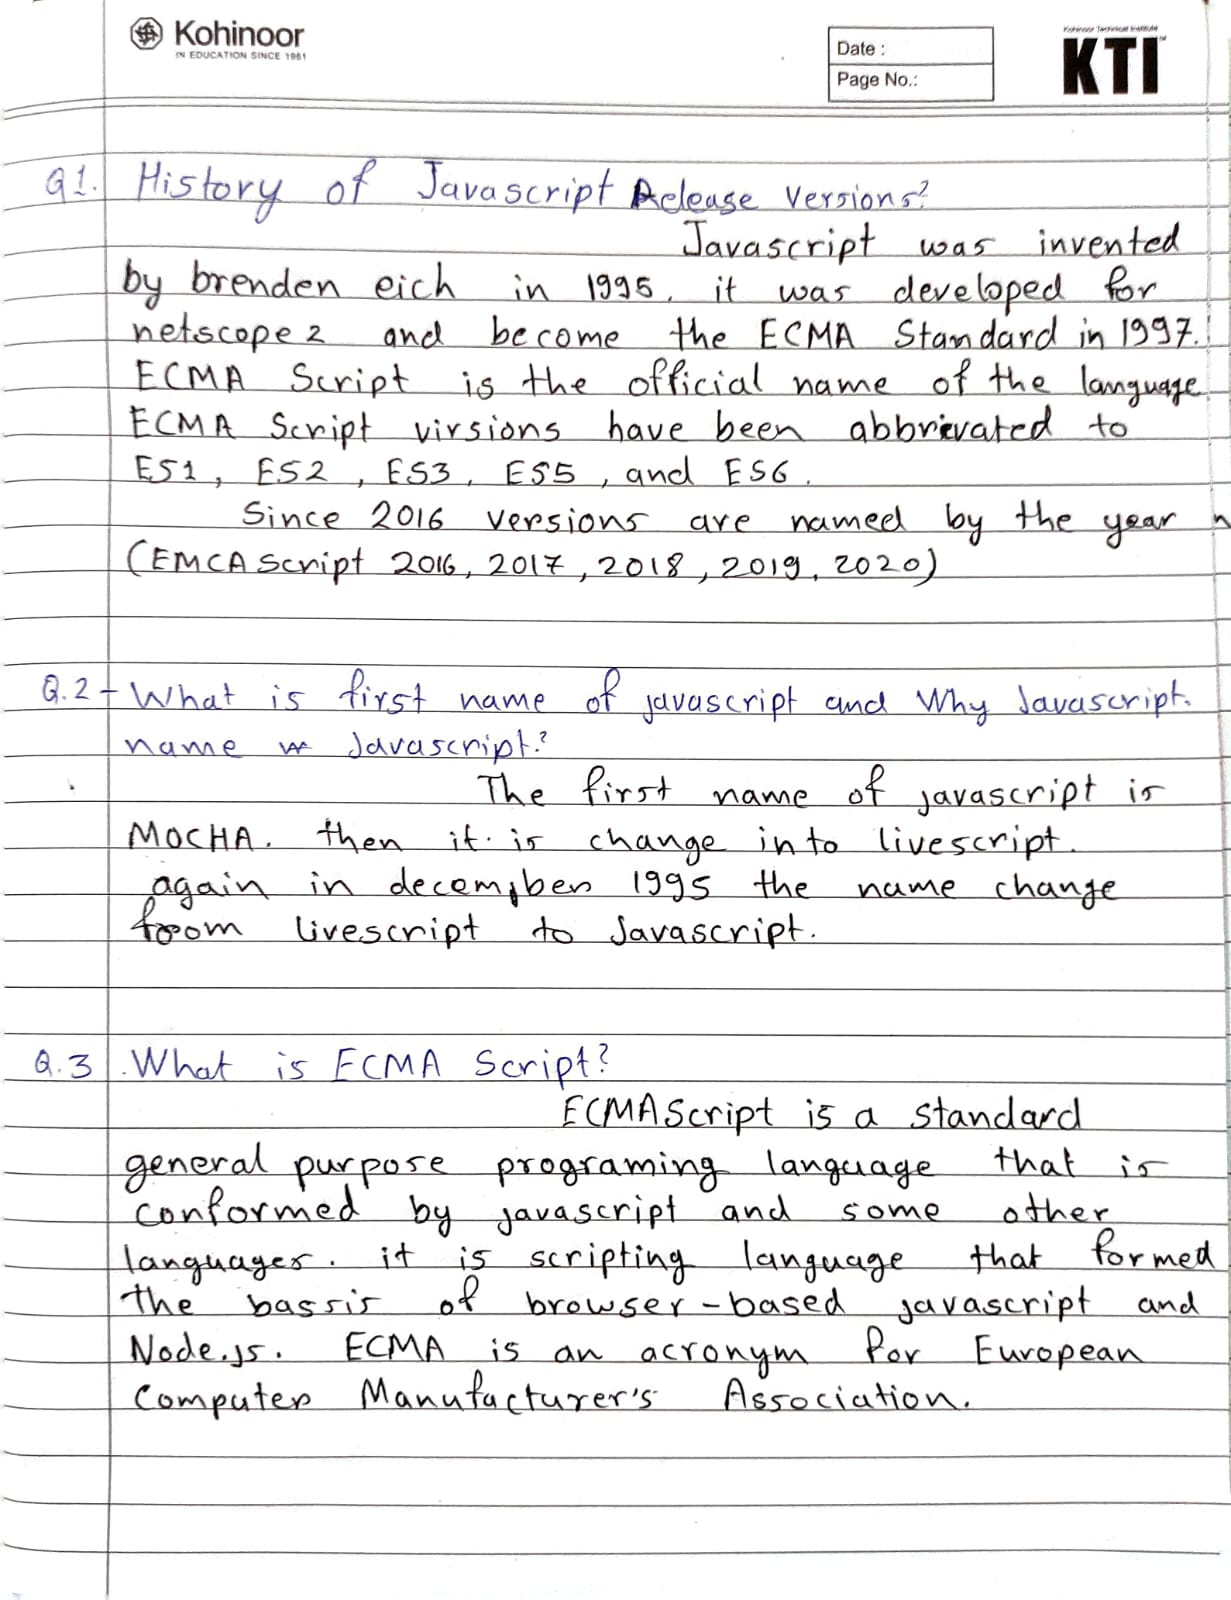 Kohinoor
IN EDUCATION SINCE 1961
Date :
Page No.:
Kohinoor Technical Institute
KTI
Q1. History of Javascript Release Versions?
Javascript was invented
by brenden eich in 1995. it was developed for
netscope 2 and become the ECMA Standard in 1997.
ECMA Script is the official name of the language
ECMA Script virsions have been abbrivated to
ES1, ES2, ES3, ES5, and ES6.
Since 2016 versions are named by the year
(EMCA Script 2016, 2017, 2018, 2019, 2020)
Q.2 - What is first name of javascript and Why Javascript.
name Javascript.?
The first name of javascript is
MOCHA. then it is change into livescript.
again in december 1995 the name change
from livescript to Javascript.
Q.3 What is ECMA Script?
ECMAScript is a standard
general purpose programing language that is
conformed by javascript and some other
languages. it is scripting language that formed
the bassis of browser-based javascript and
Node.js. ECMA is an acronym for European
Computer Manufacturer's Association.